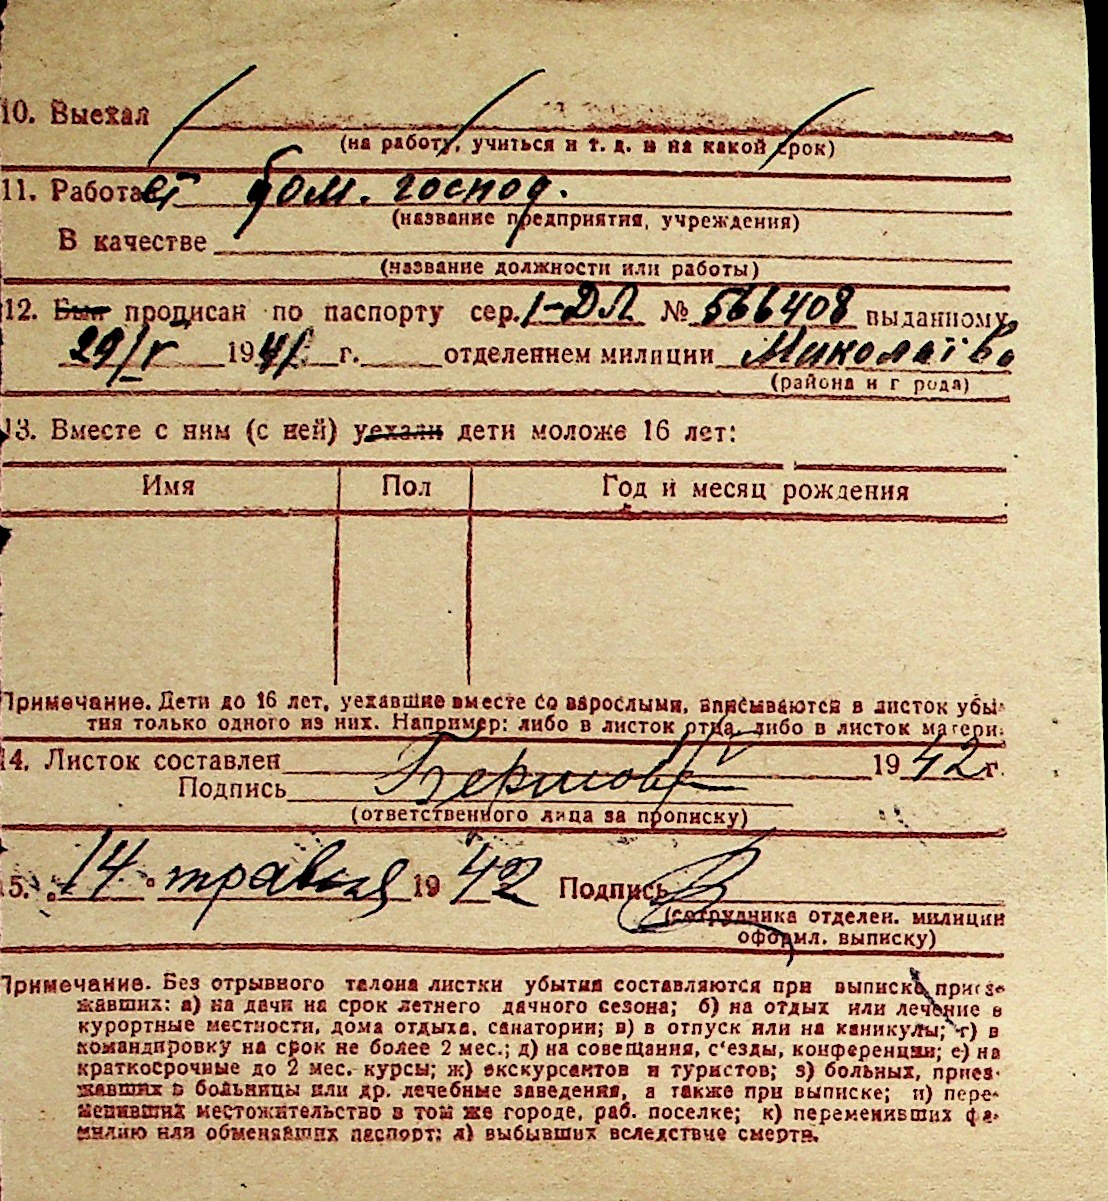 10. Выехал
(на работу, учиться и т. д. и на какой срок)
11. Работает дом. господ.
(название предприятия, учреждения)
В качестве
(название должности или работы)
12. Был прописан по паспорту сер. І-ДЛ № 566408 выданному
29/V 1941 г. отделением милиции Миколаїво
(района и г рода)
13. Вместе с ним (с ней) уехали дети моложе 16 лет:
Имя Пол Год и месяц рождения
Примечание. Дети до 16 лет, уехавшие вместе со взрослыми, вписываются в листок убы-
тия только одного из них. Например: либо в листок отца, либо в листок матери.
14. Листок составлен 1942 г.
Подпись
(ответственного лица за прописку)
15. „14" травня 1942 Подпись
(сотрудника отделен. милиции
оформл. выписку)
Примечание. Без отрывного талона листки убытия составляются при выписке приез-
жавших: а) на дачи на срок летнего дачного сезона; б) на отдых или лечение в
курортные местности, дома отдыха, санатории; в) в отпуск или на каникулы; г) в
командировку на срок не более 2 мес.; д) на совещания, с'езды, конференции; е) на
краткосрочные до 2 мес. курсы; ж) экскурсантов и туристов; з) больных, приез-
жавших в больницы или др. лечебные заведения, а также при выписке; и) пере-
менивших местожительство в том же городе, раб. поселке; к) переменивших фа-
милию или обменявших паспорт; л) выбывших вследствие смерти.